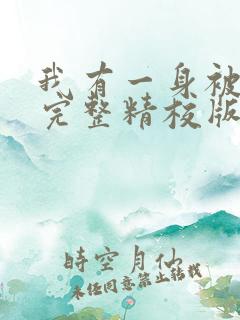 我有一身被
完整精校版
時空月仙
未经同意禁止转载